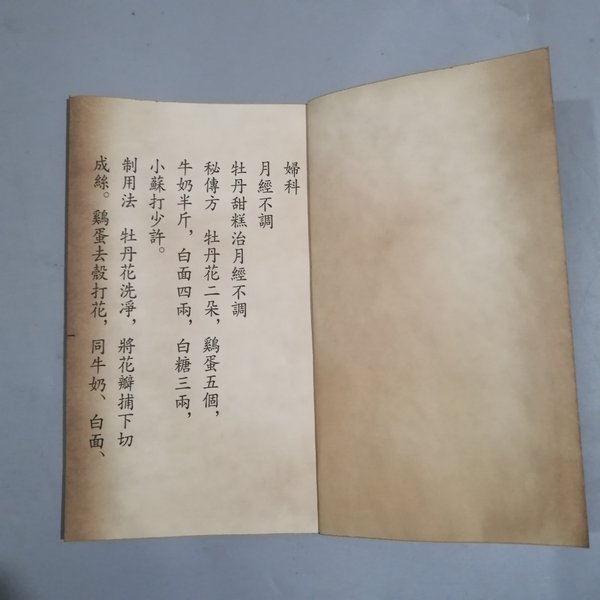 婦科
月經不調
牡丹甜糕治月經不調
秘傳方　牡丹花二朵，鷄蛋五個，
牛奶半斤，白面四兩，白糖三兩，
小蘇打少許。
制用法　牡丹花洗凈，將花瓣捕下切
成絲。鷄蛋去殼打花，同牛奶、白面、